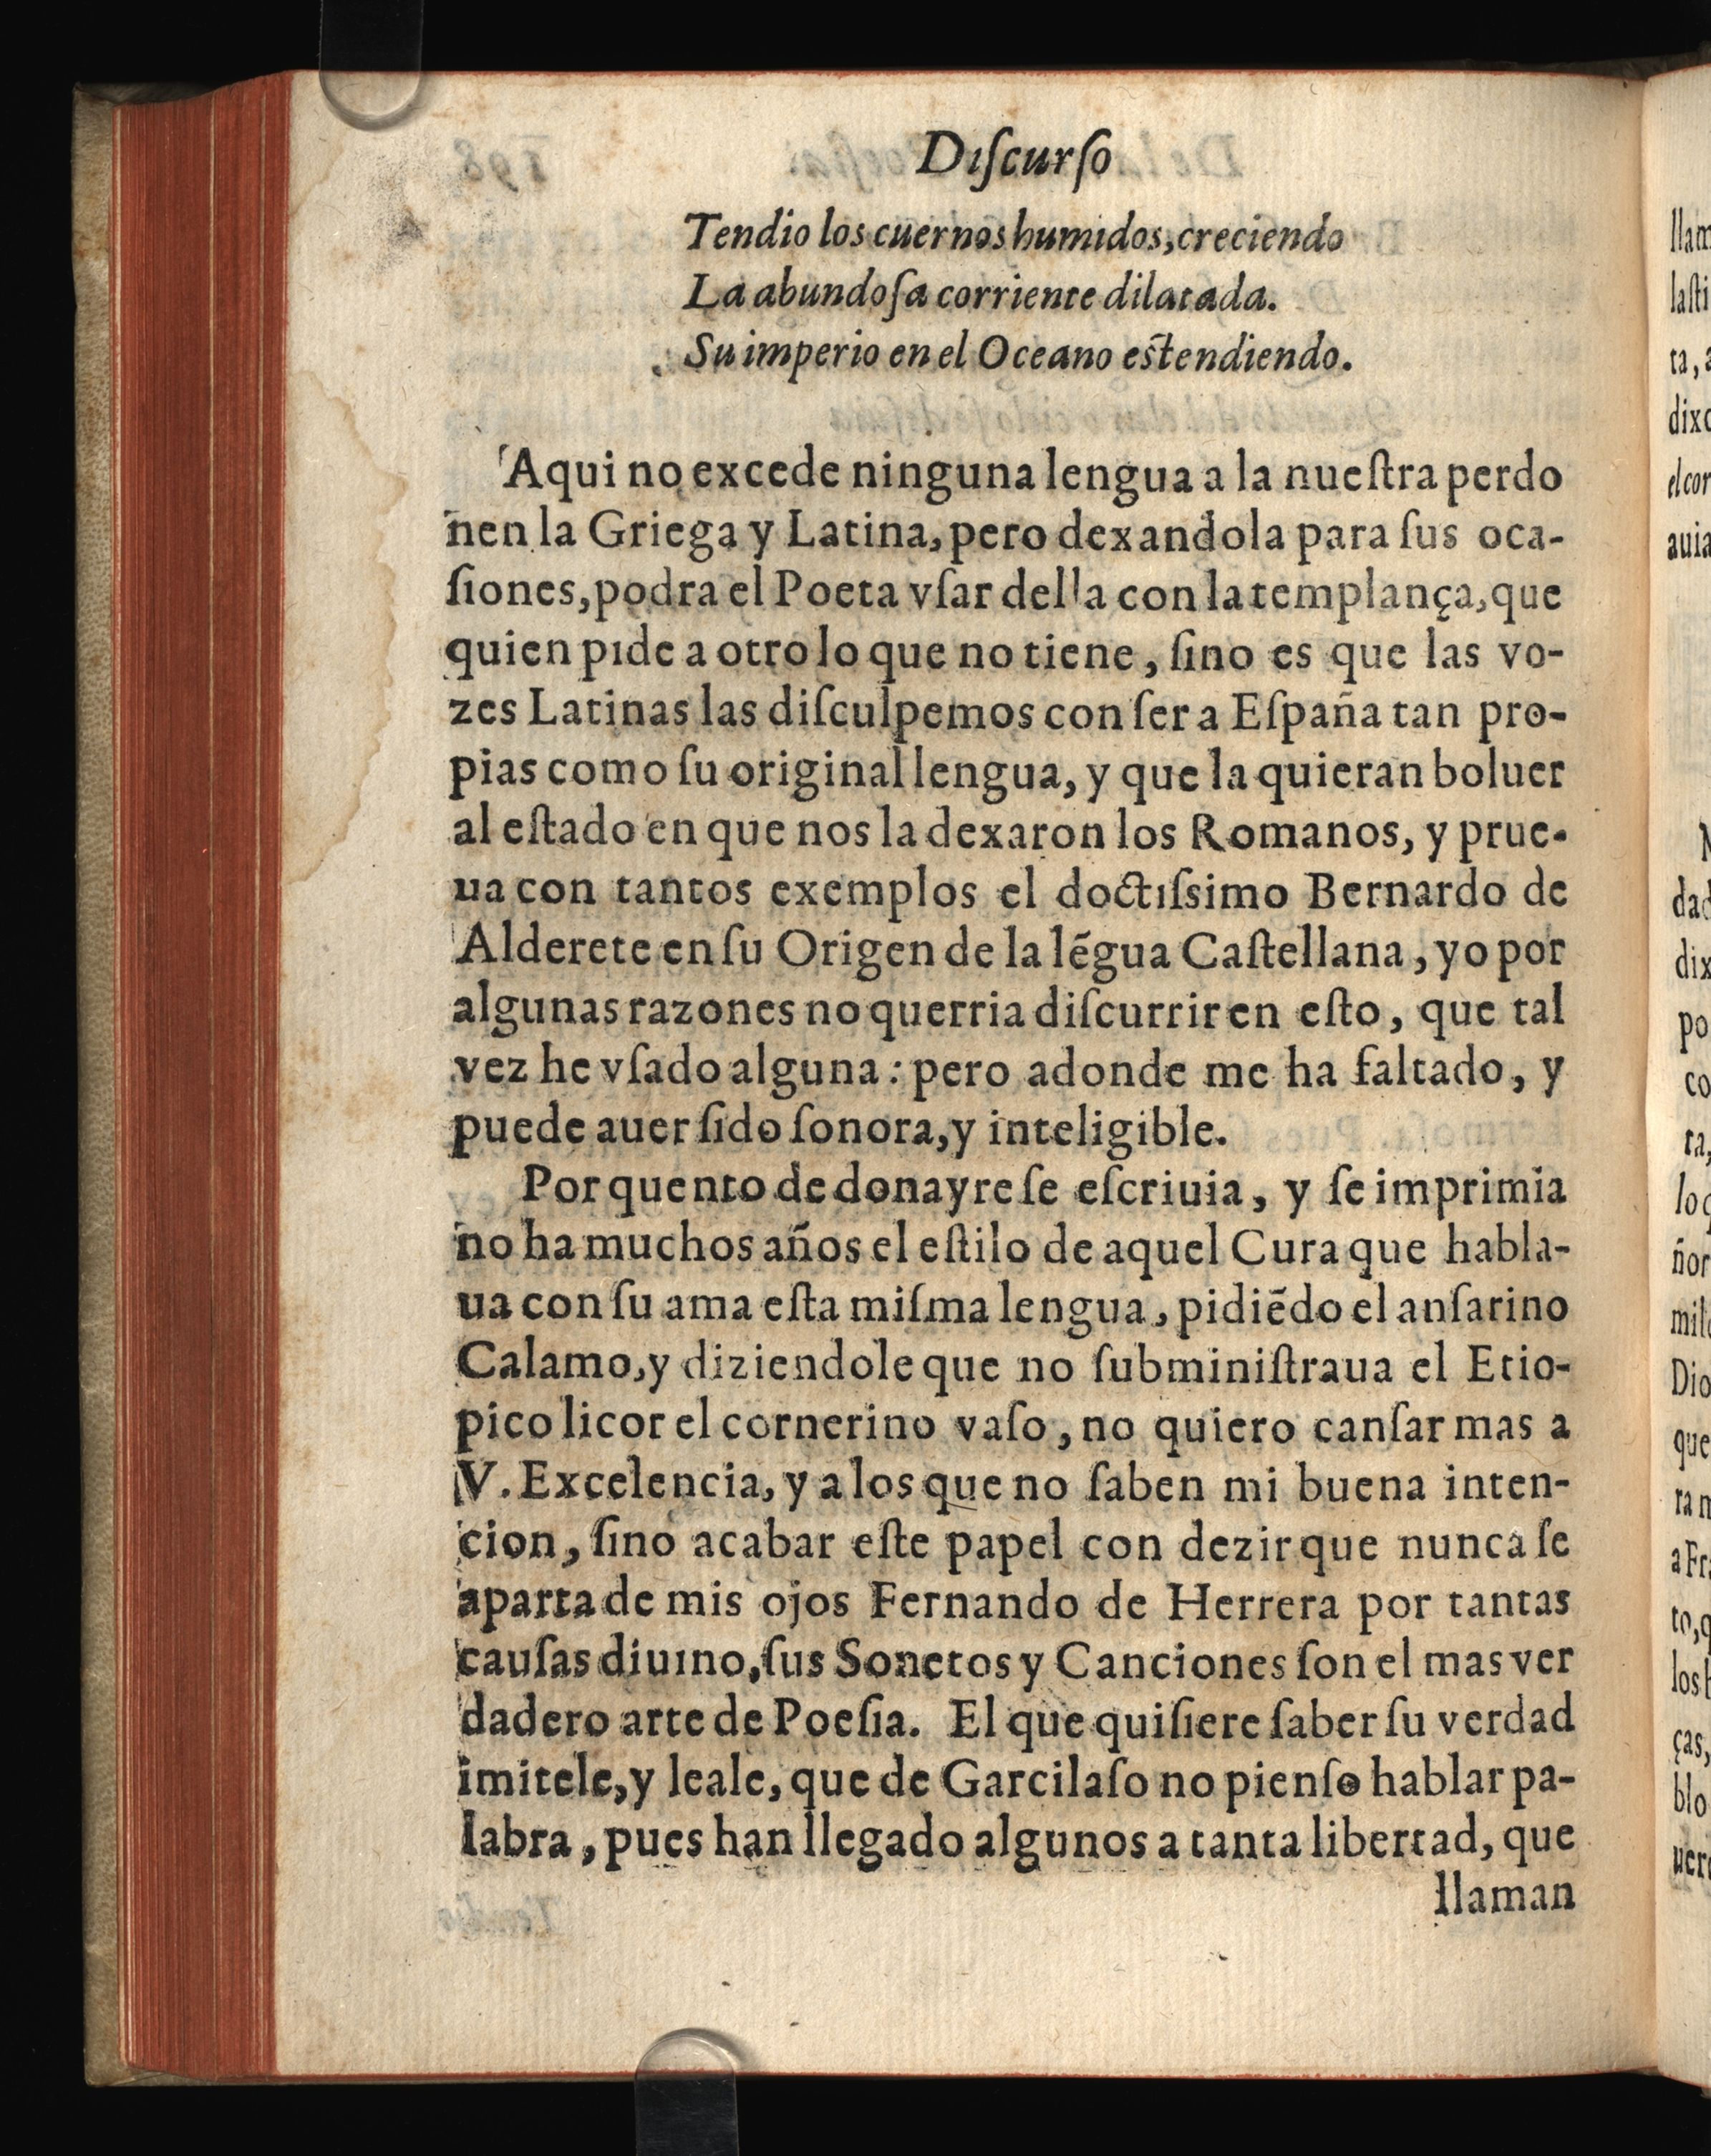 Diſcurſo
Tendio los cuernos humidos, creciendo
La abundoſa corriente dilatada.
Su imperio en el Oceano eſtendiendo.
Aqui no excede ninguna lengua a la nueſtra perdo
nen la Griega y Latina, pero dexandola para ſus oca-
ſiones, podra el Poeta vſar della con la templança, que
quien pide a otro lo que no tiene, ſino es que las vo-
zes Latinas las diſculpemos con ſer a Eſpaña tan pro-
pias como ſu original lengua, y que la quieran boluer
al eſtado en que nos la dexaron los Romanos, y prue-
ua con tantos exemplos el doctiſsimo Bernardo de
Alderete en ſu Origen de la lẽgua Caſtellana, yo por
algunas razones no querria diſcurrir en eſto, que tal
vez he vſado alguna: pero adonde me ha faltado, y
puede auer ſido ſonora, y inteligible.
Por quento de donayre ſe eſcriuia, y ſe imprimia
no ha muchos años el eſtilo de aquel Cura que habla-
ua con ſu ama eſta miſma lengua, pidiẽdo el anſarino
Calamo, y diziendole que no ſubminiſtraua el Etio-
pico licor el cornerino vaſo, no quiero canſar mas a
V. Excelencia, y a los que no ſaben mi buena inten-
cion, ſino acabar eſte papel con dezir que nunca ſe
aparta de mis ojos Fernando de Herrera por tantas
cauſas diuino, ſus Sonetos y Canciones ſon el mas ver
dadero arte de Poeſia. El que quiſiere ſaber ſu verdad
imitele, y leale, que de Garcilaſo no pienſo hablar pa-
labra, pues han llegado algunos a tanta libertad, que
llaman